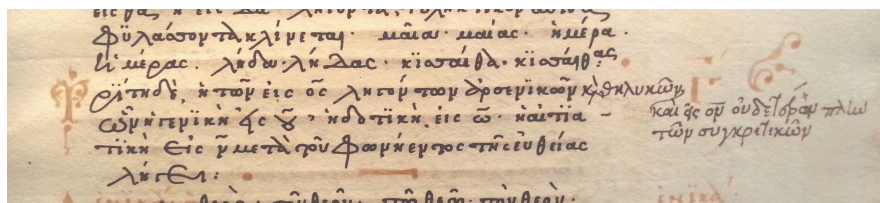 φϋλάσσοντα κλίνεται· μαῖα· μαίας· ἡμέρα·
ἡμέρας· λήδα· λήδας· κισσαίθα· κισσαίθας
τρίτη δὲ, ἡ τῶν εἰς ος ληγόντων ἀρσενικῶν καὶ θηλυκῶν,
ὧν ἡ γενικὴ εἰς ου· ἡ δοτικὴ εἰς ω· ἡ αἰτια
τικὴ εἰς ν μετὰ τοῦ φωνήεντος τῆς εὐθείας
λήγει:
καὶ εἰς ον οὐδετέρων
τῶν συγκριτικῶν